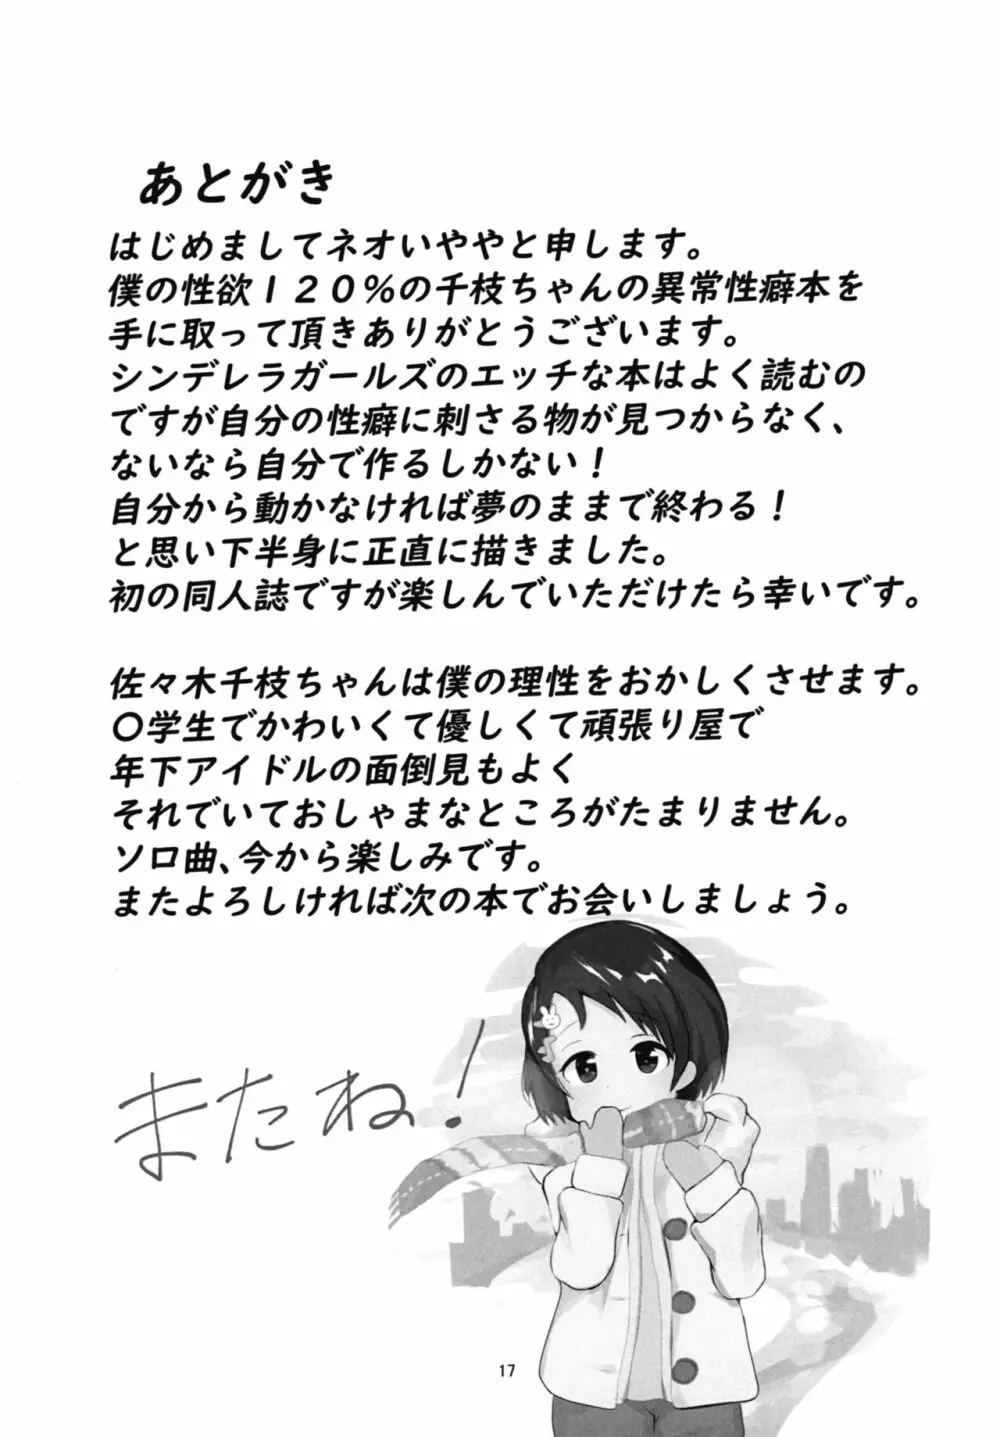 あとがき
はじめましてネオいややと申します。
僕の性欲１２０％の千枝ちゃんの異常性癖本を
手に取って頂きありがとうございます。
シンデレラガールズのエッチな本はよく読むの
ですが自分の性癖に刺さる物が見つからなく、
ないなら自分で作るしかない！
自分から動かなければ夢のままで終わる！
と思い下半身に正直に描きました。
初の同人誌ですが楽しんでいただけたら幸いです。
佐々木千枝ちゃんは僕の理性をおかしくさせます。
〇学生でかわいくて優しくて頑張り屋で
年下アイドルの面倒見もよく
それでいておしゃまなところがたまりません。
ソロ曲、今から楽しみです。
またよろしければ次の本でお会いしましょう。
またね！
17